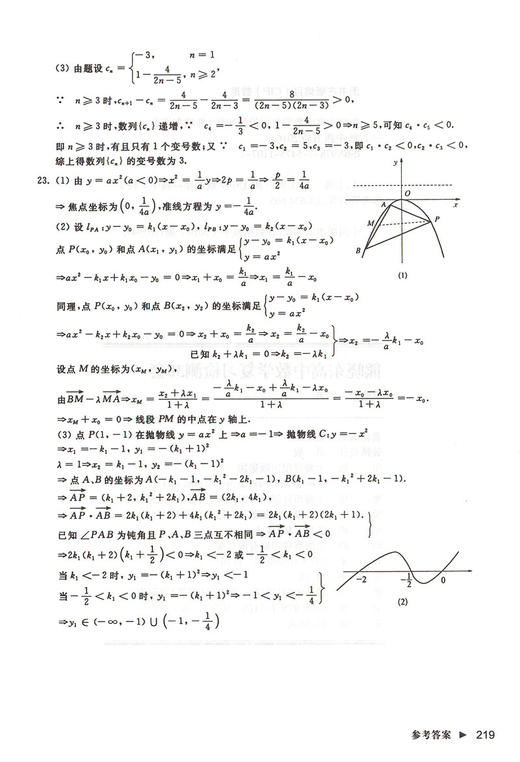 (3) 由题设 cₙ = { -3, n = 1
1 - 4/(2n-5), n ≥ 2'
∵ n ≥ 3 时, cₙ₊₁ - cₙ = 4/(2n-5) - 4/(2n-3) = 8/((2n-5)(2n-3)) > 0,
∴ n ≥ 3 时,数列{cₙ}递增,∵ c₄ = -1/3 < 0, 1 - 4/(2n-5) > 0 ⇒ n ≥ 5,可知 c₄ · c₅ < 0.
即 n ≥ 3 时,有且只有 1 个变号数;又∵ c₁ = -3, c₂ = 5, c₃ = -3, 即 c₁ · c₂ < 0, c₂ · c₃ < 0,
综上得数列{cₙ}的变号数为 3.
23. (1) 由 y = ax² (a < 0) ⇒ x² = 1/a y ⇒ 2p = 1/a ⇒ p/2 = 1/4a
⇒ 焦点坐标为 (0, 1/4a), 准线方程为 y = -1/4a.
(2) 设 l_PA : y - y₀ = k₁(x - x₀), l_PB : y - y₀ = k₂(x - x₀)
点 P(x₀, y₀) 和点 A(x₁, y₁) 的坐标满足 { y - y₀ = k₁(x - x₀)
y = ax²
⇒ ax² - k₁x + k₁x₀ - y₀ = 0 ⇒ x₁ + x₀ = k₁/a ⇒ x₁ = k₁/a - x₀
同理,点 P(x₀, y₀) 和点 B(x₂, y₂) 的坐标满足 { y - y₀ = k₁(x - x₀)
y = ax²
⇒ ax² - k₂x + k₂x₀ - y₀ = 0 ⇒ x₂ + x₀ = k₂/a ⇒ x₂ = k₂/a - x₀ } ⇒ x₂ = -λ/a k₁ - x₀
已知 k₂ + λk₁ = 0 ⇒ k₂ = -λk₁
设点 M 的坐标为 (x_M, y_M),
由 BM = λMA ⇒ x_M = (x₂ + λx₁)/(1+λ) = (-λ/a k₁ - x₀ + λ/a k₁ - λx₀)/(1+λ) = (-x₀ - λx₀)/(1+λ) = -x₀.
⇒ x_M + x₀ = 0 ⇒ 线段 PM 的中点在 y 轴上.
(3) 点 P(1, -1) 在抛物线 y = ax² 上 ⇒ a = -1 ⇒ 抛物线 C: y = -x²
⇒ x₁ = -k₁ - 1, y₁ = -(k₁ + 1)²
λ = 1 ⇒ x₂ = k₁ - 1, y₂ = -(k₁ - 1)²
⇒ 点 A、B 的坐标为 A(-k₁ - 1, -k₁² - 2k₁ - 1), B(k₁ - 1, -k₁² + 2k₁ - 1).
⇒ AP = (k₁ + 2, k₁² + 2k₁), AB = (2k₁, 4k₁),
⇒ AP · AB = 2k₁(k₁ + 2) + 4k₁(k₁² + 2k₁) = 2k₁(k₁ + 2)(2k₁ + 1).
已知 ∠PAB 为钝角且 P、A、B 三点互不相同 ⇒ AP · AB < 0
⇒ 2k₁(k₁ + 2)(k₁ + 1/2) < 0 ⇒ k₁ < -2 或 -1/2 < k₁ < 0
当 k₁ < -2 时, y₁ = -(k₁ + 1)² ⇒ y₁ < -1
当 -1/2 < k₁ < 0 时, y₁ = -(k₁ + 1)² ⇒ -1 < y₁ < -1/4
⇒ y₁ ∈ (-∞, -1) ∪ (-1, -1/4)
y
O
x
A
P
M
B
(1)
-2
-1/2
0
(2)
参考答案 ▶ 219